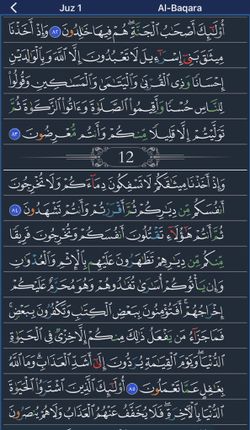 Juz 1 Al-Baqara
أُوْلَٰٓئِكَ أَصْحَٰبُ ٱلْجَنَّةِ ۖ هُمْ فِيهَا خَٰلِدُونَ ٨٢ وَإِذْ أَخَذْنَا
مِيثَٰقَ بَنِىٓ إِسْرَٰٓءِيلَ لَا تَعْبُدُونَ إِلَّا ٱللَّهَ وَبِٱلْوَٰلِدَيْنِ
إِحْسَانًا وَذِى ٱلْقُرْبَىٰ وَٱلْيَتَٰمَىٰ وَٱلْمَسَٰكِينِ وَقُولُوا۟
لِلنَّاسِ حُسْنًا وَأَقِيمُوا۟ ٱلصَّلَوٰةَ وَءَاتُوا۟ ٱلزَّكَوٰةَ ثُمَّ
تَوَلَّيْتُمْ إِلَّا قَلِيلًا مِّنكُمْ وَأَنتُم مُّعْرِضُونَ ٨٣
12
وَإِذْ أَخَذْنَا مِيثَٰقَكُمْ لَا تَسْفِكُونَ دِمَآءَكُمْ وَلَا تُخْرِجُونَ
أَنفُسَكُم مِّن دِيَٰرِكُمْ ثُمَّ أَقْرَرْتُمْ وَأَنتُمْ تَشْهَدُونَ ٨٤
ثُمَّ أَنتُمْ هَٰٓؤُلَآءِ تَقْتُلُونَ أَنفُسَكُمْ وَتُخْرِجُونَ فَرِيقًا
مِّنكُم مِّن دِيَٰرِهِمْ تَظَٰهَرُونَ عَلَيْهِم بِٱلْإِثْمِ وَٱلْعُدْوَٰنِ
وَإِن يَأْتُوكُمْ أُسَٰرَىٰ تُفَٰدُوهُمْ وَهُوَ مُحَرَّمٌ عَلَيْكُمْ
إِخْرَاجُهُمْ ۚ أَفَتُؤْمِنُونَ بِبَعْضِ ٱلْكِتَٰبِ وَتَكْفُرُونَ بِبَعْضٍ ۚ
فَمَا جَزَآءُ مَن يَفْعَلُ ذَٰلِكَ مِنكُمْ إِلَّا خِزْىٌ فِى ٱلْحَيَوٰةِ
ٱلدُّنْيَا ۖ وَيَوْمَ ٱلْقِيَٰمَةِ يُرَدُّونَ إِلَىٰٓ أَشَدِّ ٱلْعَذَابِ ۗ وَمَا ٱللَّهُ
بِغَٰفِلٍ عَمَّا تَعْمَلُونَ ٨٥ أُو۟لَٰٓئِكَ ٱلَّذِينَ ٱشْتَرَوُا۟ ٱلْحَيَوٰةَ
ٱلدُّنْيَا بِٱلْءَاخِرَةِ ۖ فَلَا يُخَفَّفُ عَنْهُمُ ٱلْعَذَابُ وَلَا هُمْ يُنصَرُونَ